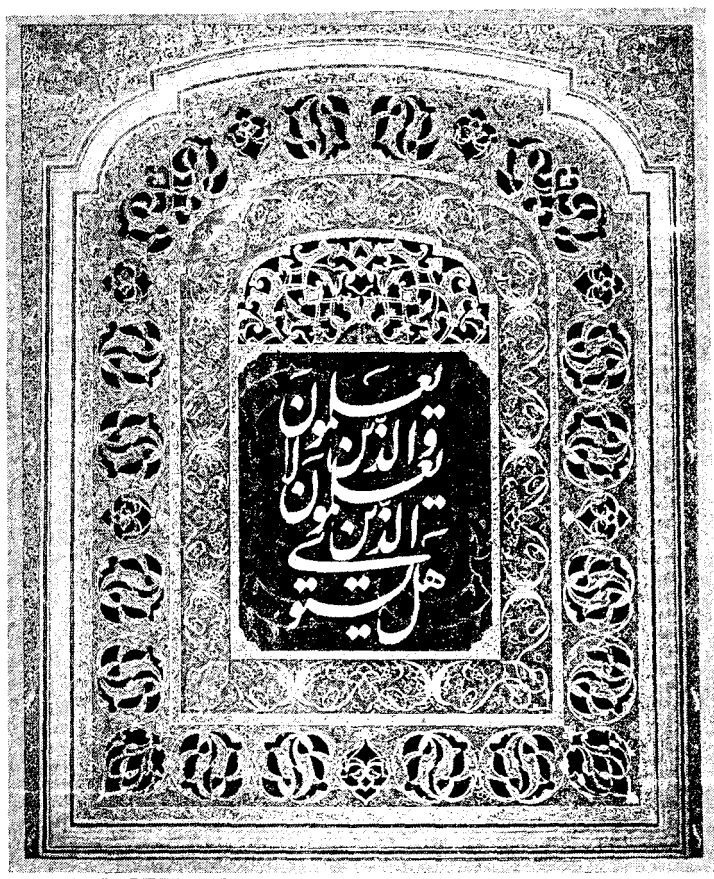 هل یستوی
الذین
یعلمون
والذین لا
یعلمون